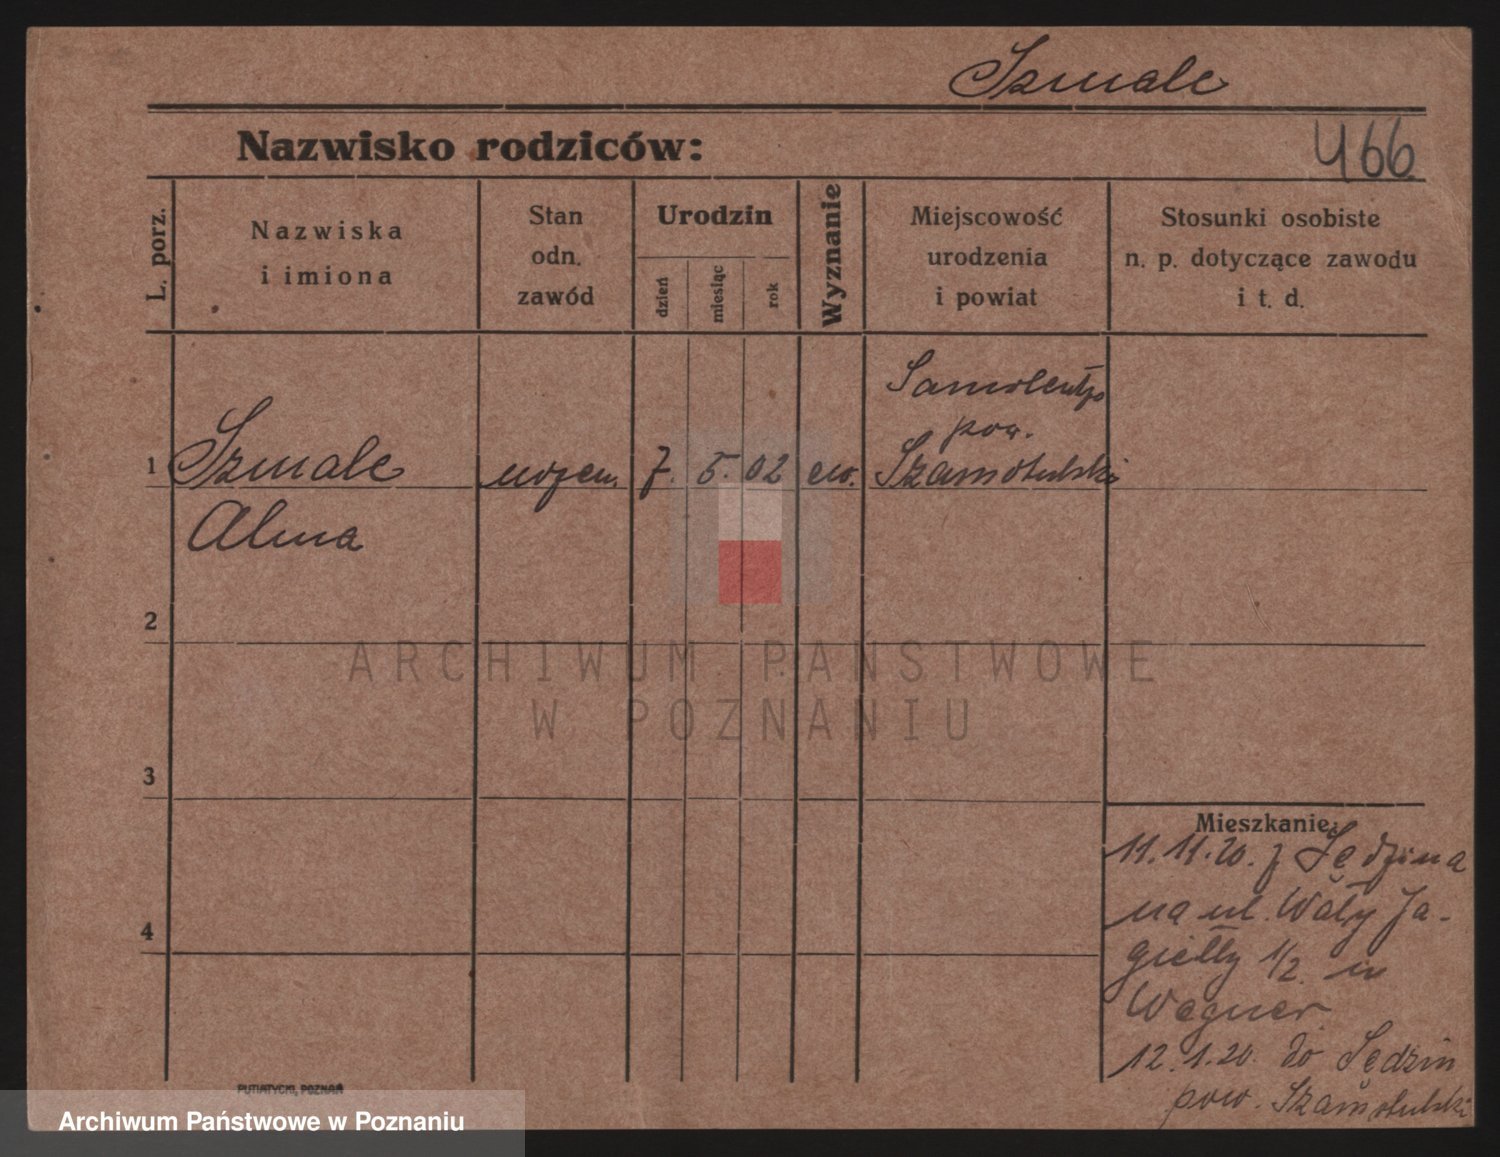 Szmalc
Nazwisko rodziców:
466
L. porz.
Nazwiska
i imiona
Stan
odn.
zawód
Urodzin
dzień
miesiąc
rok
Wyznanie
Miejscowość
urodzenia
i powiat
Stosunki osobiste
n. p. dotyczące zawodu
i t. d.
pow.
1 Szmalc 7. 5. 02 ew. Szamotulski
Alma
2
ARCHIWUM PAŃSTWOWE
W POZNANIU
3
Mieszkanie:
11.11.20. z Sędzina
4
na ul. Wały Ja-
giełły 1/2 u
Wegner
12.1.20. do Sędzin
pow. Szamotulski
PUTIATYCKI, POZNAŃ
Archiwum Państwowe w Poznaniu